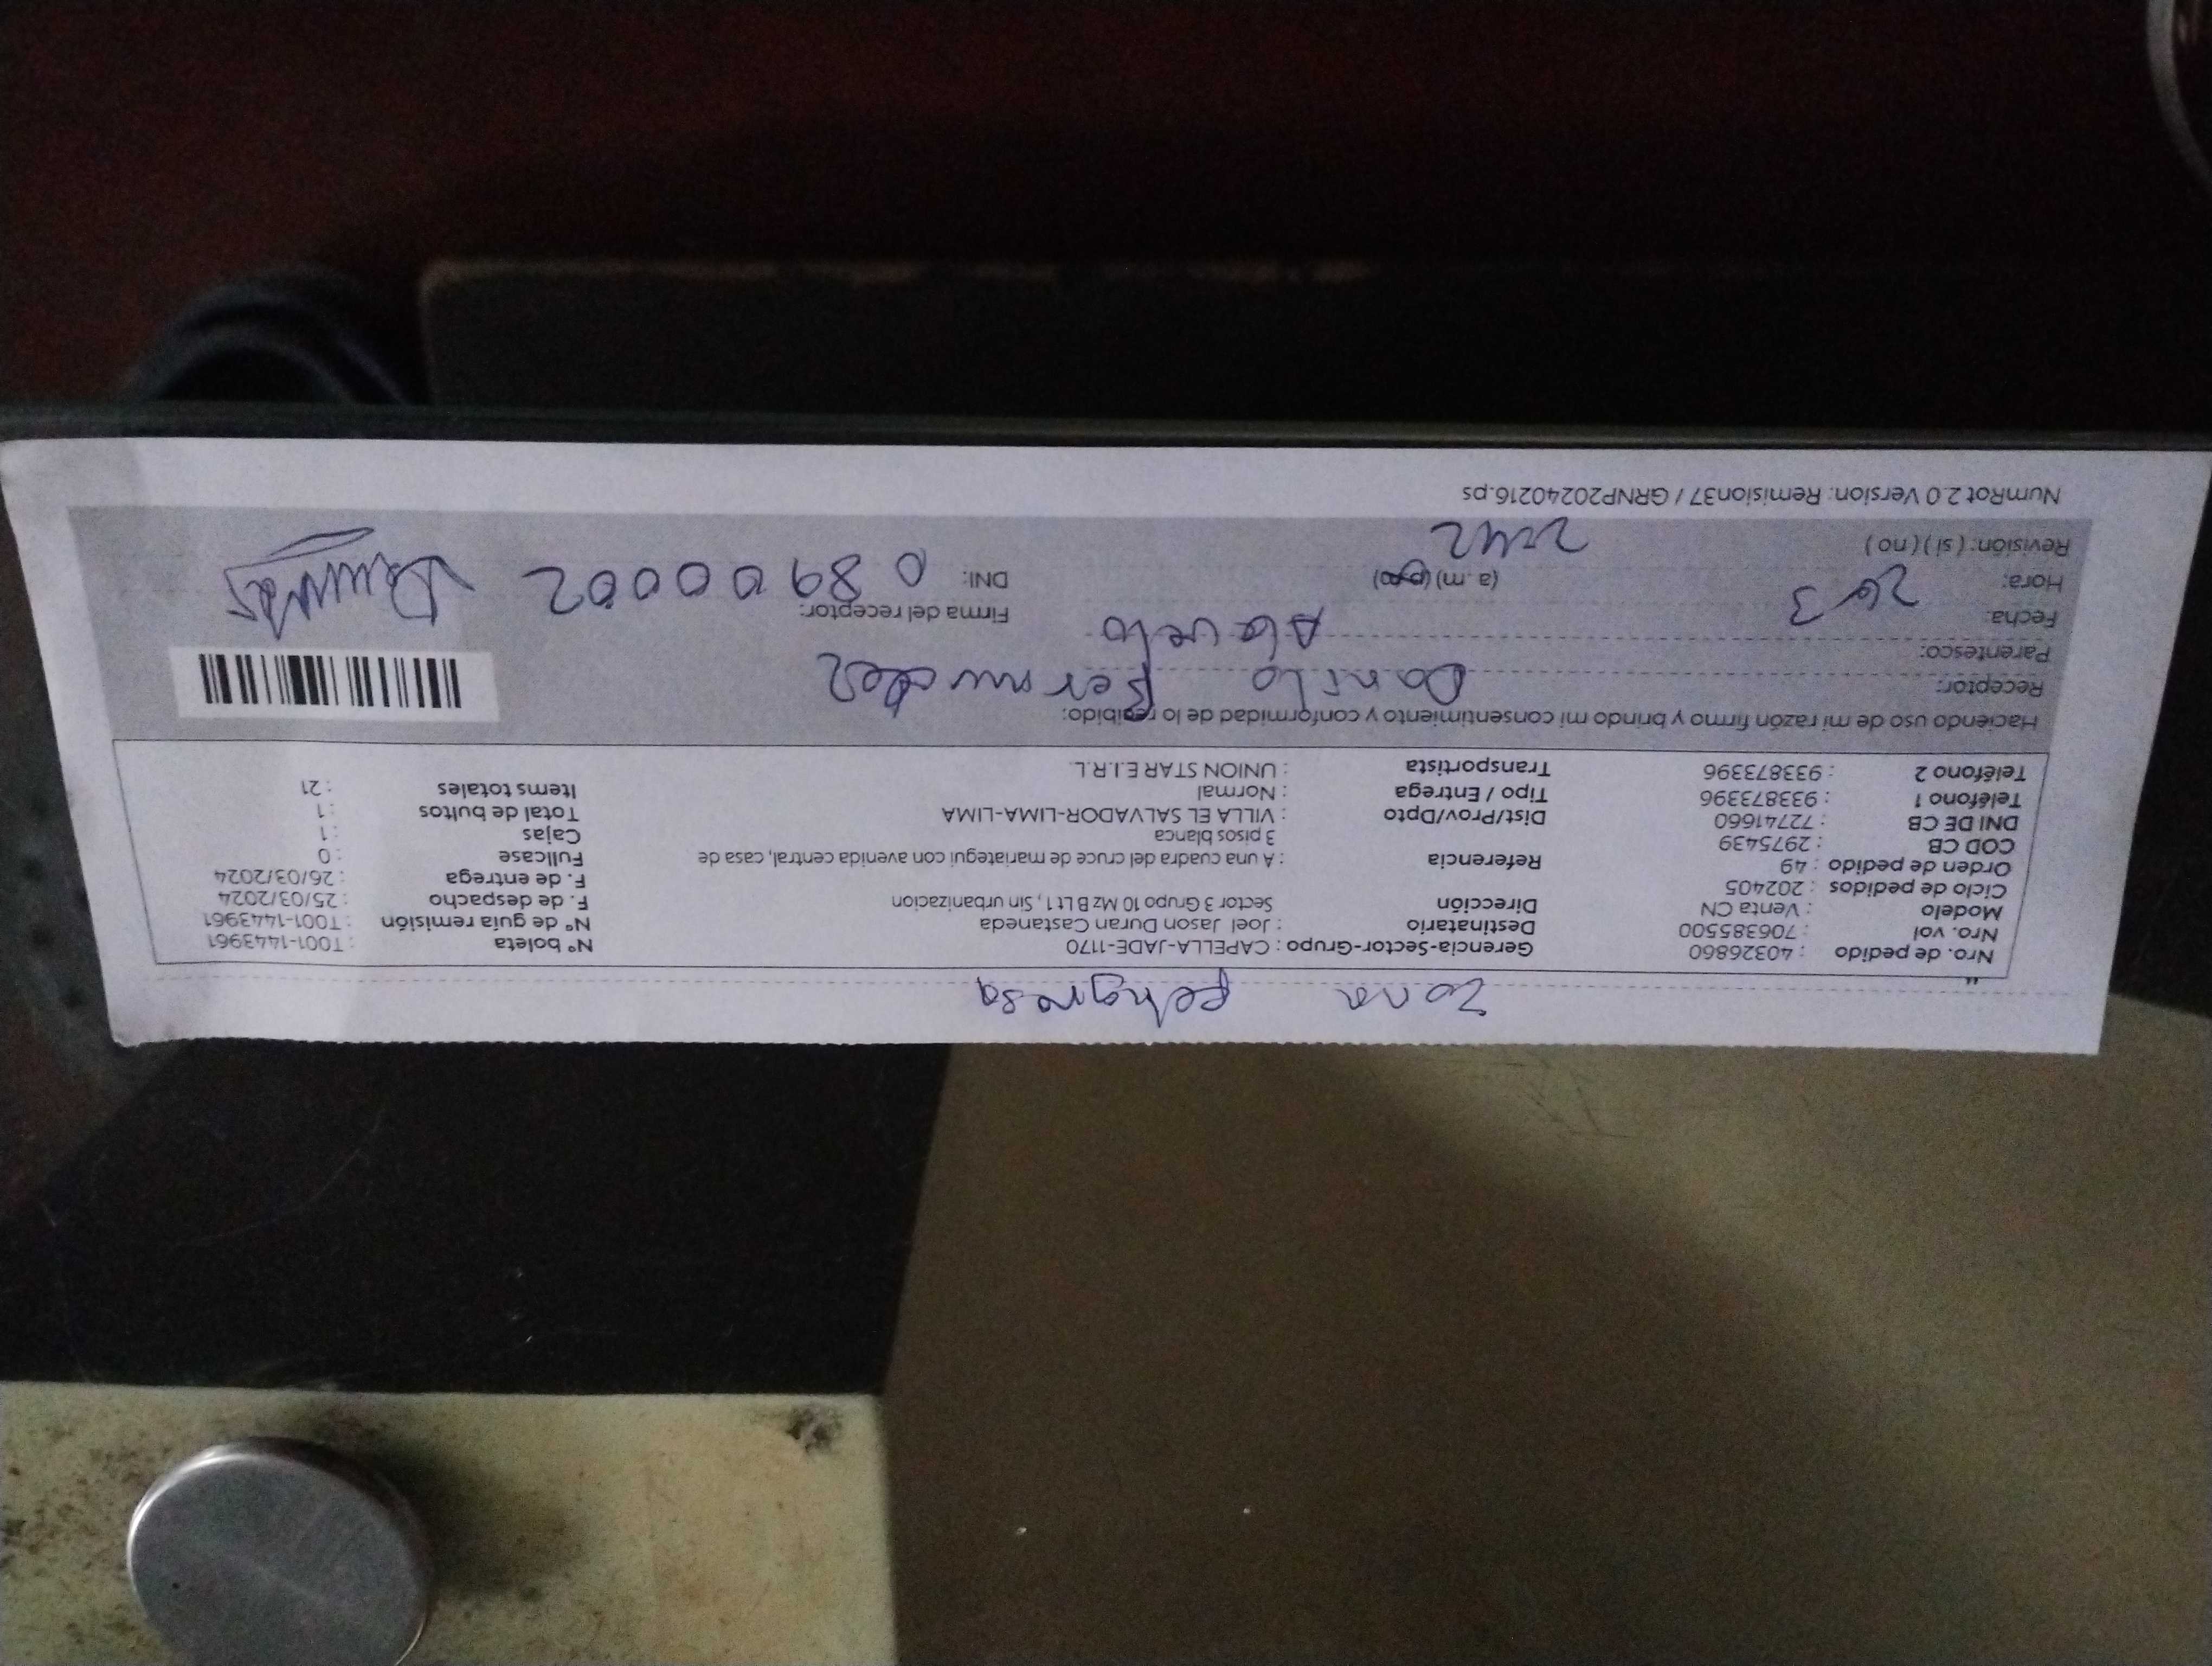 Zona peligrosa
Nro. de pedido : 40326860 Gerencia-Sector-Grupo : CAPELLA-JADE-1170 Nº boleta : T001-1443961
Nro. vol : 706385500 Destinatario : Joel Jason Duran Castaneda Nº de guia remisión : T001-1443961
Modelo : Venta CN Dirección Sector 3 Grupo 10 Mz B Lt 1 , Sin urbanizacion F. de despacho : 25/03/2024
Ciclo de pedidos : 202405 F. de entrega : 26/03/2024
Orden de pedido : 49 Referencia : A una cuadra del cruce de mariategui con avenida central, casa de Fullcase : 0
COD CB : 2975439 3 pisos blanca Cajas : 1
DNI DE CB : 72741660 Dist/Prov/Dpto : VILLA EL SALVADOR-LIMA-LIMA Total de bultos : 1
Teléfono 1 : 933873396 Tipo / Entrega : Normal Items totales : 21
Teléfono 2 : 933873396 Transportista : UNION STAR E.I.R.L.
Haciendo uso de mi razón firmo y brindo mi consentimiento y conformidad de lo recibido:
Receptor: Danilo Bermudez
Parentesco: Abuelo
Fecha: 26 3 Firma del receptor:
Hora: (a. m) (p. m) DNI: 08900002
Revisión: ( si ) ( no ) 2:42
NumRot 2.0 Version: Remision37 / GRNP20240216.ps